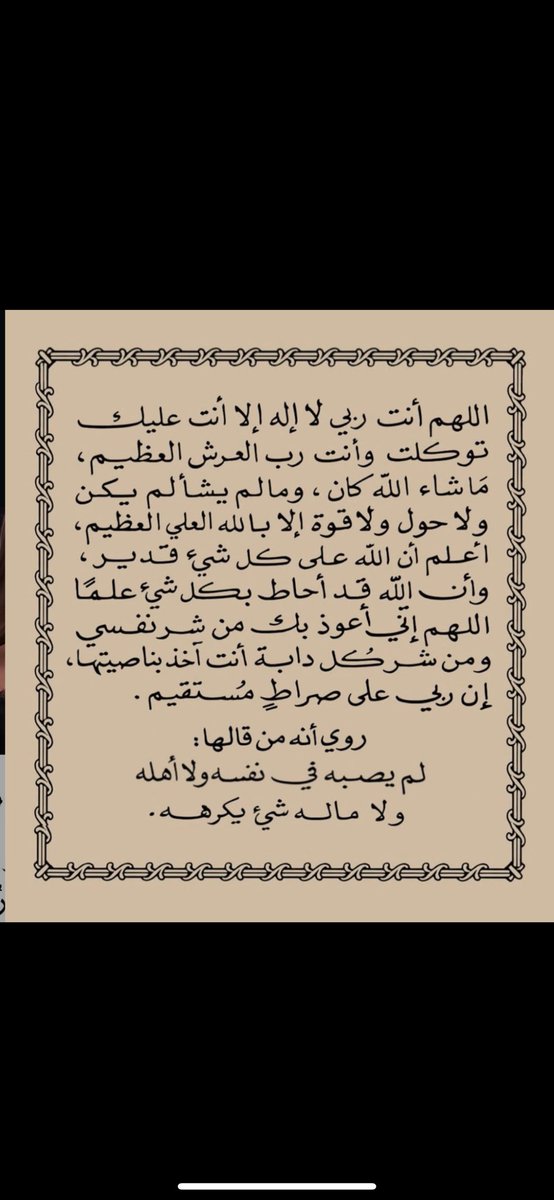 اللهم أنت ربي لا إله إلا أنت عليك
توكلت وأنت رب العرش العظيم،
مَا شاء الله كان، وما لم يشأ لم يكن
ولا حول ولا قوة إلا بالله العلي العظيم،
أعلم أن الله على كل شيء قدير،
وأن الله قد أحاط بكل شيء علمًا
اللهم إنّي أعوذ بك من شر نفسي
ومن شر كُل دابة أنت آخذ بناصيتها،
إن ربي على صراطٍ مُستقيم.
روي أنه من قالها:
لم يصبه في نفسه ولا أهله
ولا ماله شيء يكرهه.